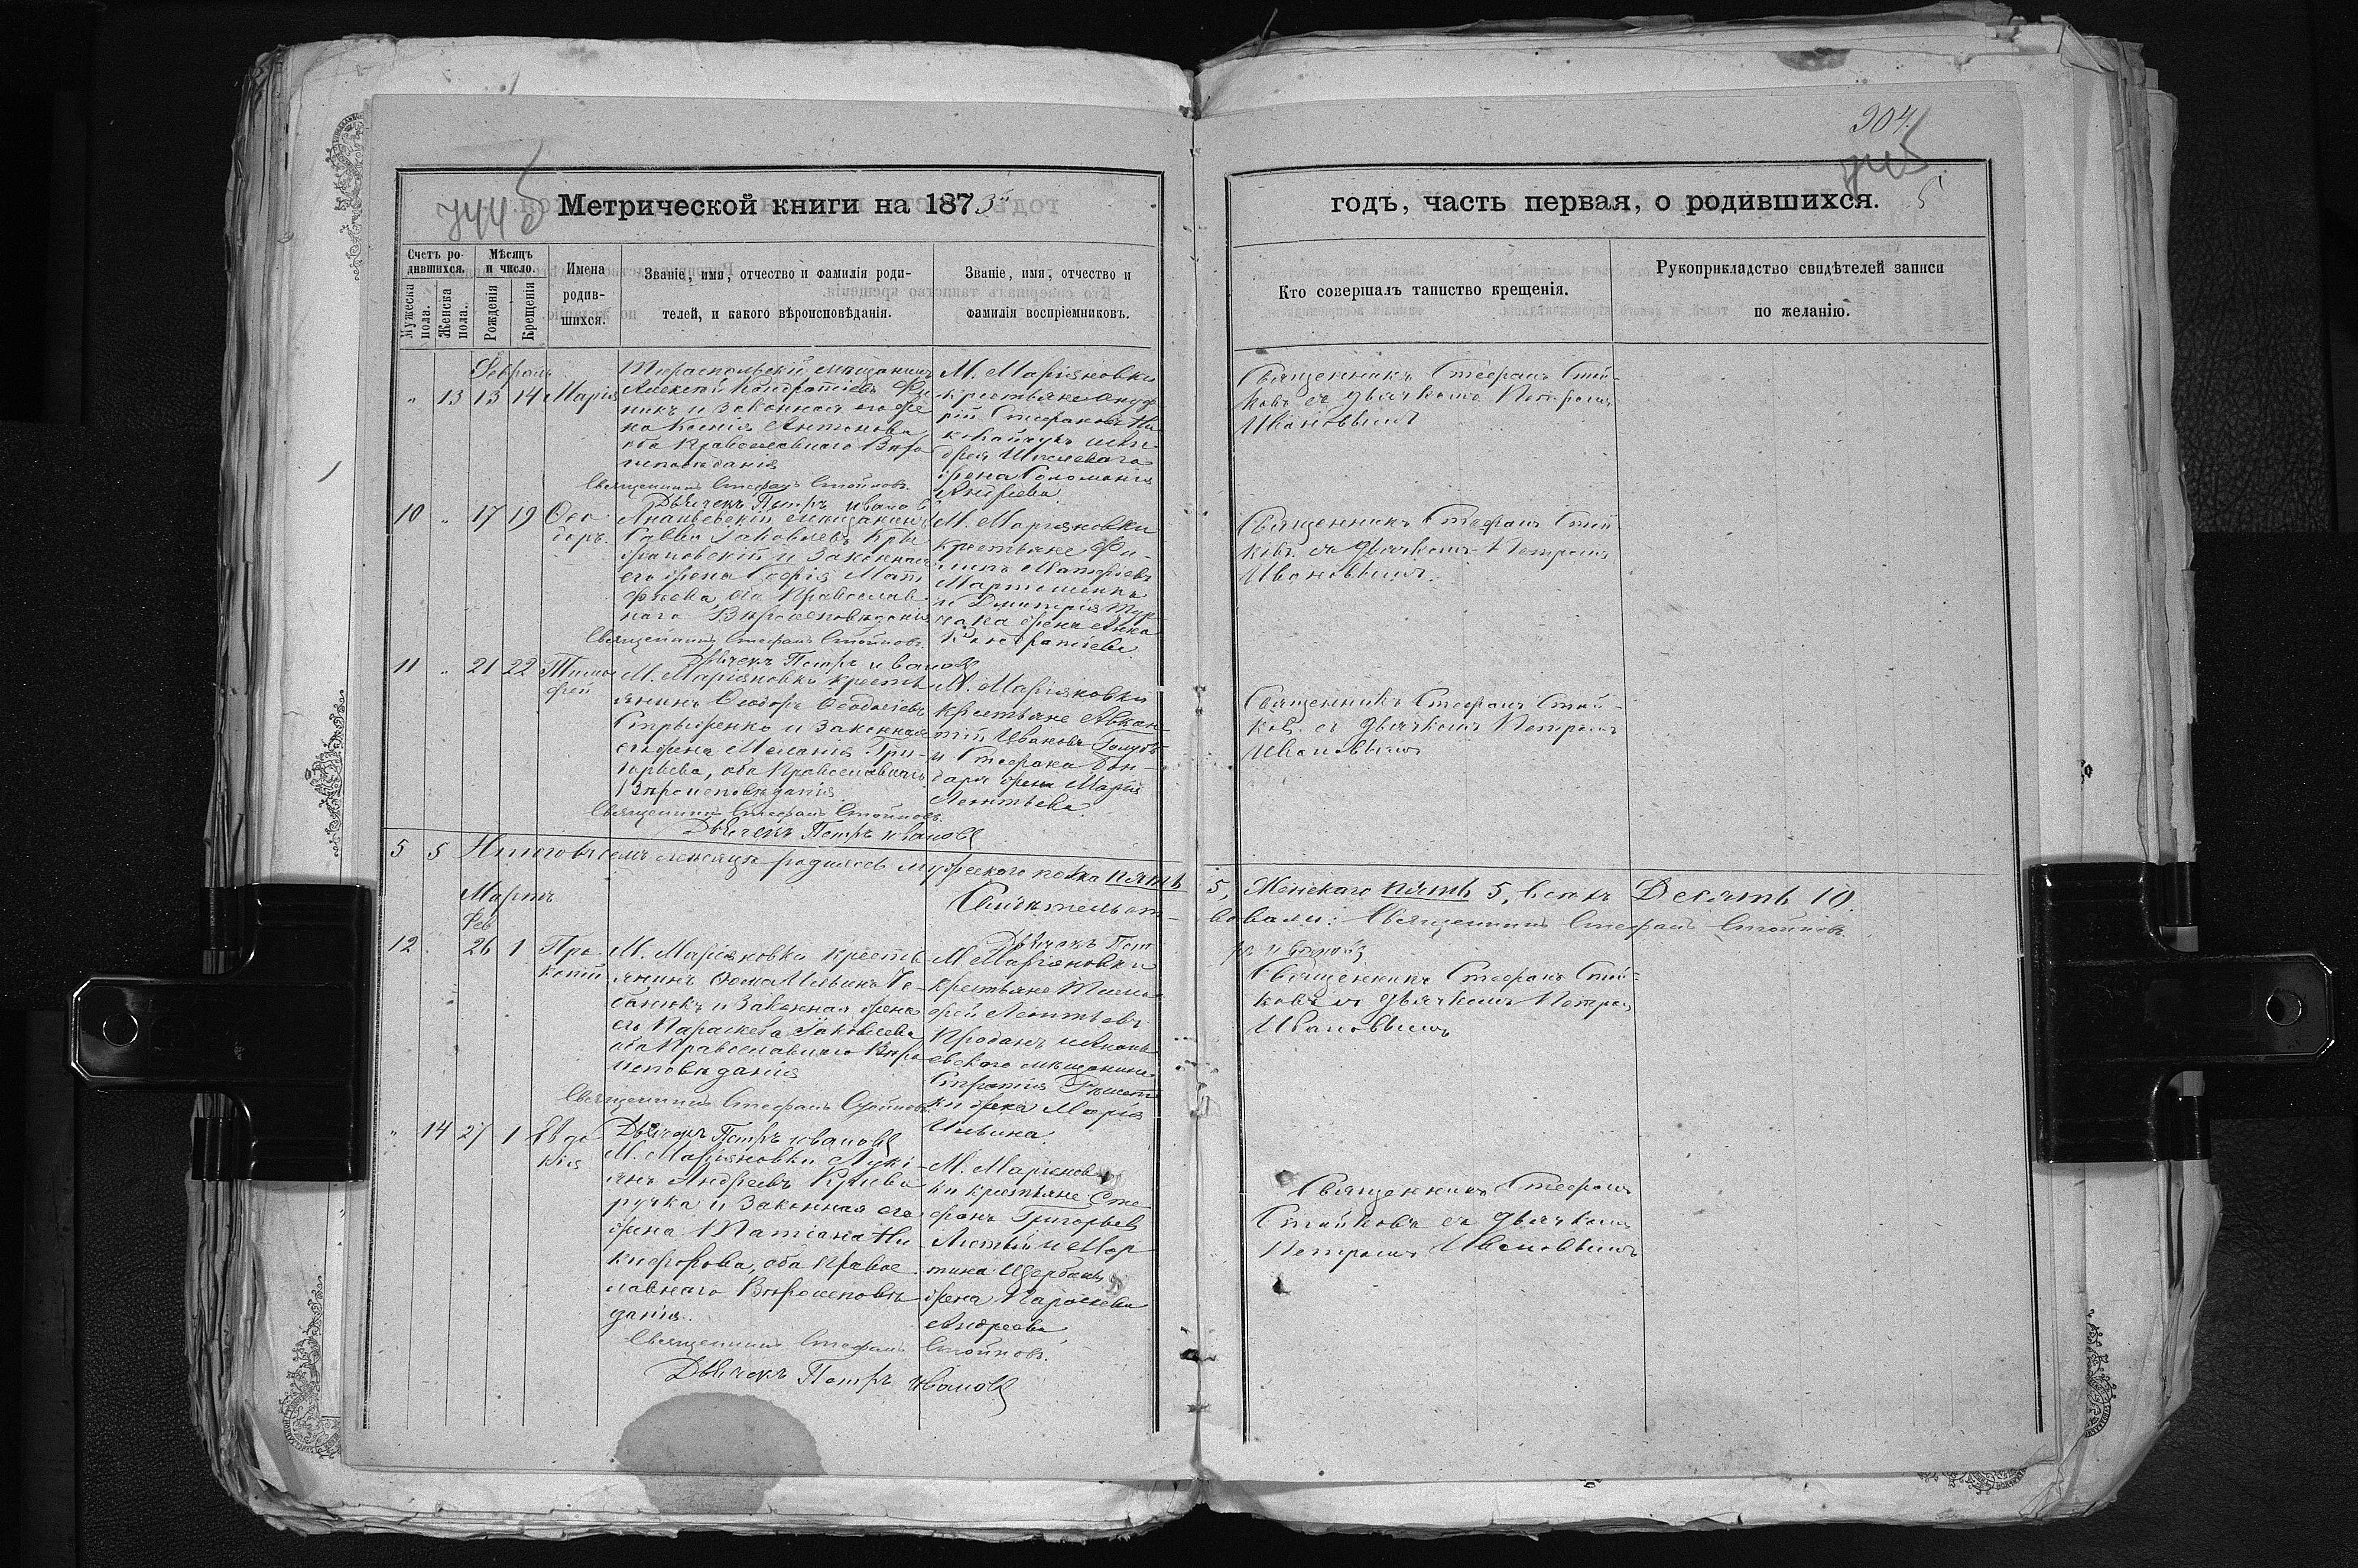 904
744
Метрической книги на 1873й
годъ, часть первая, о родившихся.
5
Счетъ родившихся.
Мѣсяцъ и число.
Мужеска пола.
Женска пола.
Рожденія
Крещенія
Имена родившихся.
Званіе, имя, отчество и фамилія родителей, и какого вѣроисповѣданія.
Званіе, имя, отчество и фамилія воспріемниковъ.
Кто совершалъ таинство крещенія.
Рукоприкладство свидѣтелей записи по желанію.
Февраль
" 13 13 14 Марія
Тираспольскій мѣщанинъ
Алексѣй Кондратіевъ
и законная его же
на Ксенія Антонова
оба Православнаго Вѣро
исповѣданія
Священникъ Стефанъ Стойковъ
Дьячекъ Петръ Ивановъ
М. Маріяновки
крестьяне Онуф
рій Стефановъ Ни
жена Соломанія
Андреева
Священникъ Стефанъ Стой-
ковъ съ дьячкомъ Петромъ
Ивановымъ
10 " 17 19 Ѳео
доръ.
Ананьевскій мѣщанинъ
Савва Іаковлевъ
и законная
его жена Софія Мат
фѣева, оба Православ
наго Вѣроисповѣданія
Священникъ Стефанъ Стойковъ
Дьячекъ Петръ Ивановъ
М. Маріяновки
крестьяне Фи-
липъ Матфіевъ
Мартыненко
и Димитрія
жена Анна
Кондратіева
Священникъ Стефанъ Стой
ковъ съ дьячкомъ Петромъ
Ивановымъ.
11 " 21 22 Тимо
фей
М. Маріяновки кресть
янинъ Ѳеодоръ Ѳеодосіевъ
и законная
его жена Меланія Гри-
горьева, оба Православнаго
Вѣроисповѣданія
Священникъ Стефанъ Стойковъ
Дьячекъ Петръ Ивановъ
М. Маріяновки
крестьяне Авксен-
тій Ивановъ Голубъ
и Стефана Бон-
даря жена Марія
Леонтьева
Священникъ Стефанъ Стой-
ковъ съ дьячкомъ Петромъ
Ивановымъ
5 5 Итого въ семъ мѣсяцѣ родилось мужескаго пола пять
5, Женскаго пять 5, всехъ Десять 10.
Свидѣтельст-
вовали: Священникъ Стефанъ Стойковъ
Дьячекъ Пет
ръ Ивановъ
Мартъ
Фев
12 26 1 Про
копій
М. Маріяновки кресть
янинъ Ѳома Ильинъ
и законная жена
его Параскева Іаковлева
оба Православнаго Вѣро
исповѣданія
Священникъ Стефанъ Стойковъ
Дьячекъ Петръ Ивановъ
М. Маріяновки
крестьяне Тимо
фей Леонтьевъ
Проданъ и Анань
евскаго мѣщанина
жена Марія
Ильина
Священникъ Стефанъ Стой-
ковъ съ дьячкомъ Петромъ
Ивановымъ
" 14 27 1 Евдо
кія
М. Маріяновки Лукі-
янъ Андреевъ Криво
ручка и законная его
жена Татіана Ни
кифорова, оба Правос
лавнаго Вѣроисповѣ
данія.
Священникъ Стефанъ Стойковъ.
Дьячекъ Петръ Ивановъ
М. Маріянов
ки крестьяне Сте
фанъ Григорьев
Лютый и Мар
тина Щербань
жена Параскева
Андреева
Священникъ Стефанъ
Стойковъ съ дьячкомъ
Петромъ Ивановымъ